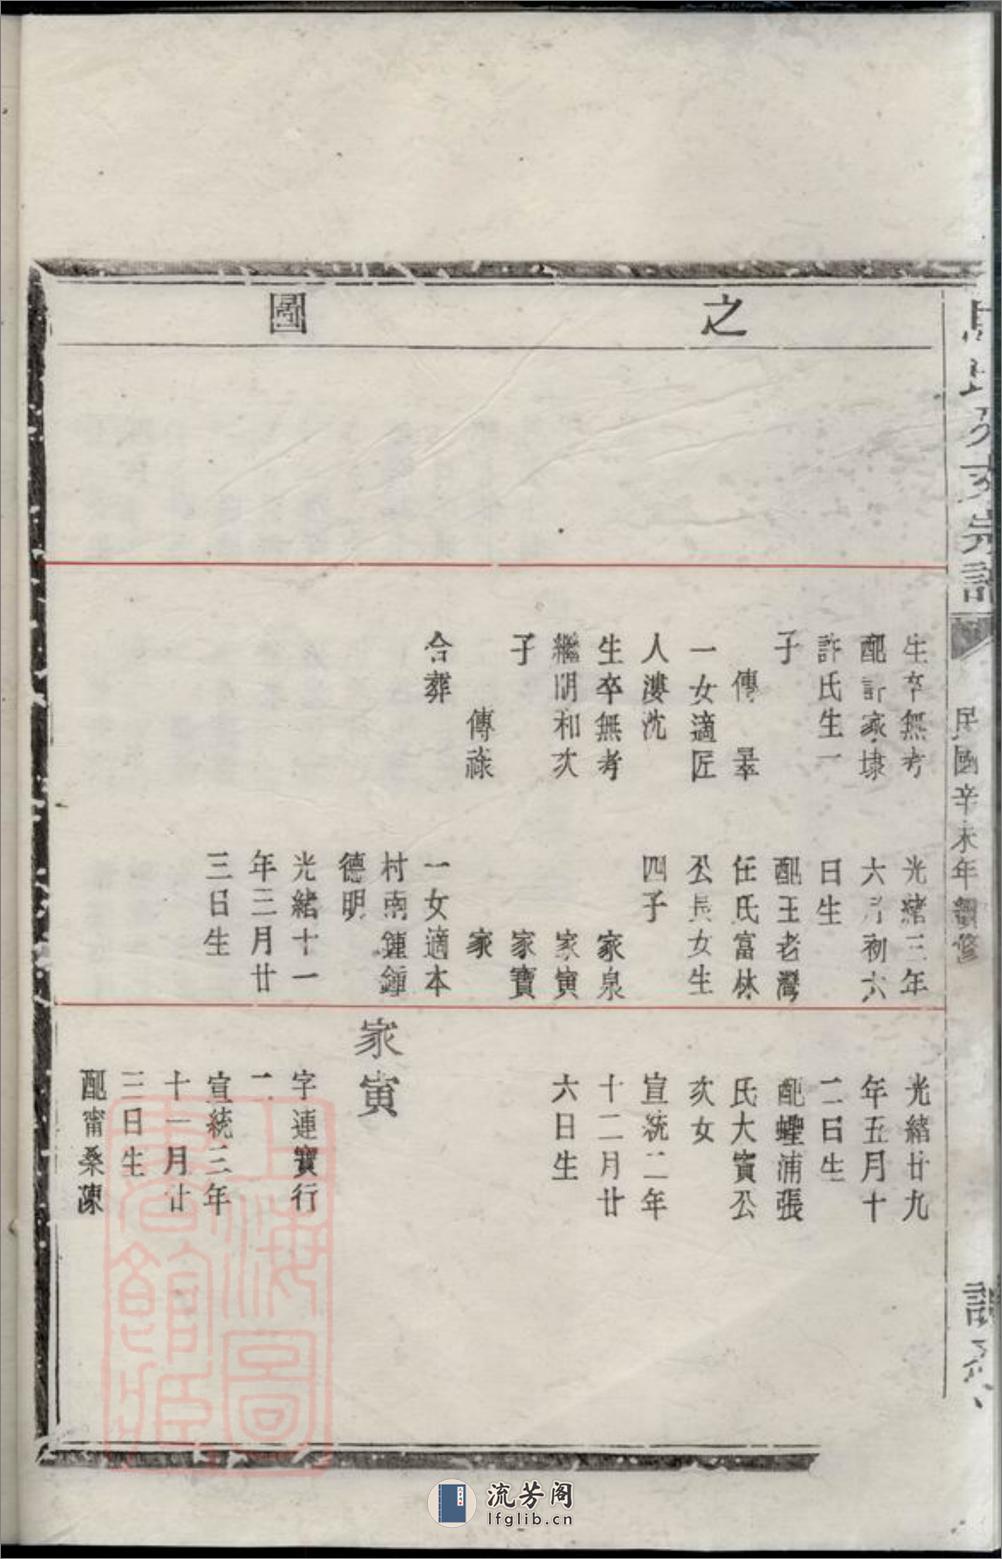 之
圖
民國辛未年續修
生卒無考
配許家埭
許氏生一
子
傳
一女適匠
人漊沈
生卒無考
繼明和次
子
傳祿
合葬
光緒三年
六月初六
日生
配王老灣
任氏富林
公長女生
四子
家泉
家寅
家寶
家
一女適本
村南鍾鍾
德明
光緒十一
年三月廿
三日生
光緒廿九
年五月十
二日生
配蟶浦張
氏大賓公
次女
宣統二年
十二月廿
六日生
家寅
字連寶行
二
宣統三年
十一月廿
三日生
配甯桑陳
上海圖
書館藏
流芳阁
lfglib.cn